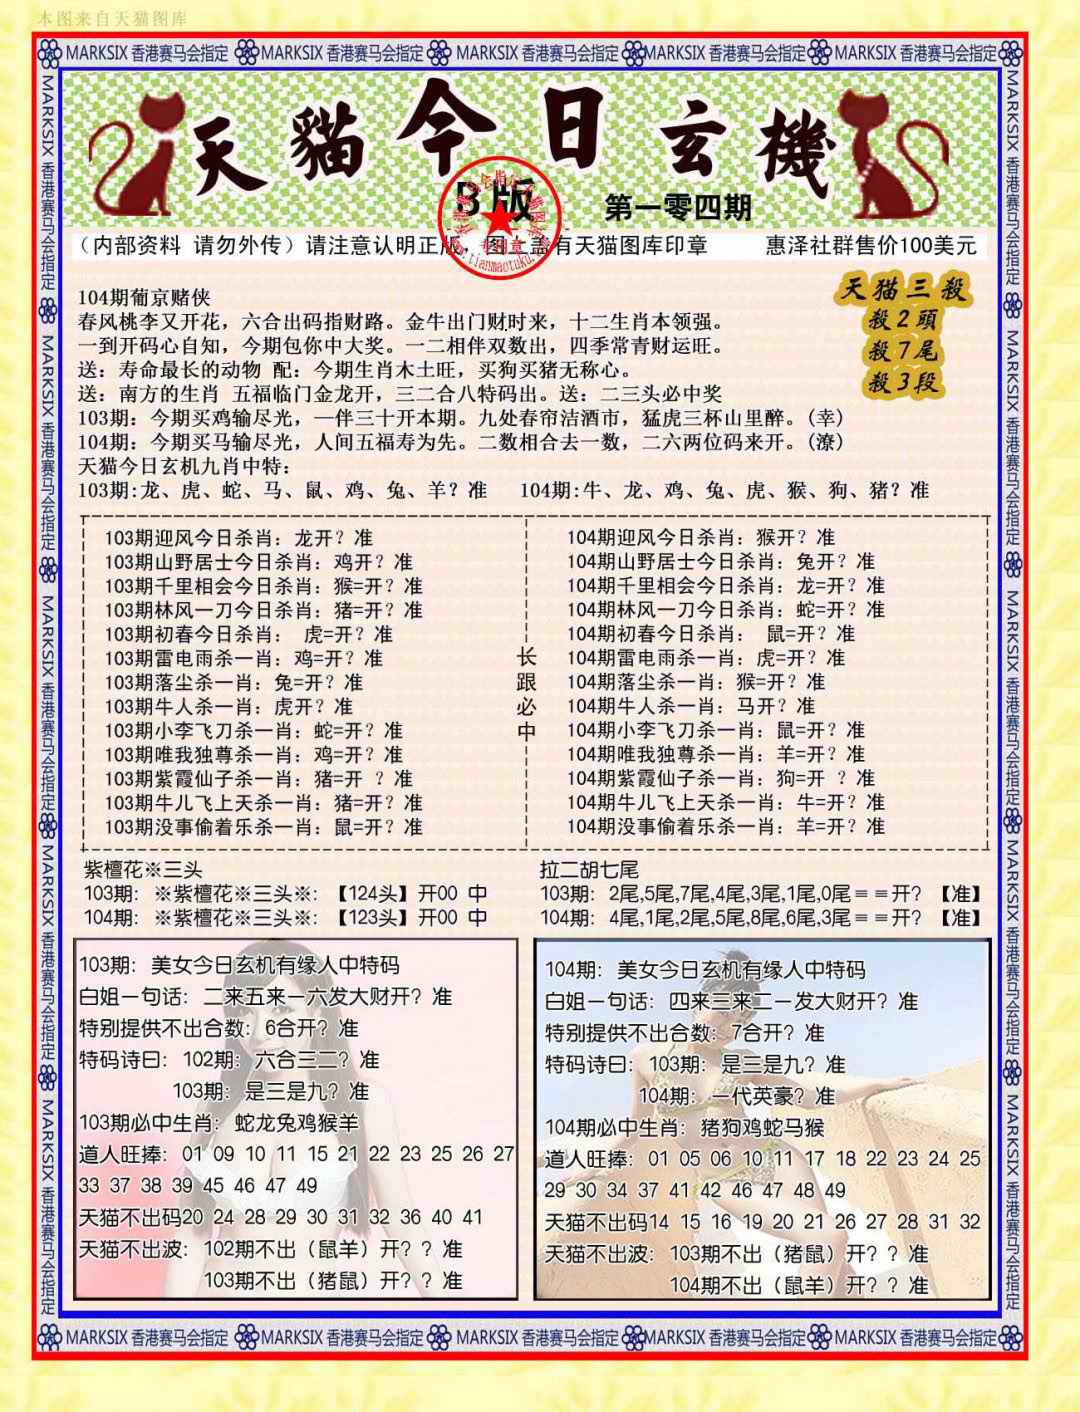 本图来自天猫图库
MARKSIX 香港赛马会指定 MARKSIX 香港赛马会指定 MARKSIX 香港赛马会指定 MARKSIX 香港赛马会指定 MARKSIX 香港赛马会指定
天貓今日玄機
B版
第一零四期
(内部资料 请勿外传) 请注意认明正版, 图 盖有天猫图库印章 惠泽社群售价100美元
专用章
.tianmaotuku.
天猫三殺
殺2頭
殺7尾
殺3段
104期葡京赌侠
春风桃李又开花，六合出码指财路。金牛出门财时来，十二生肖本领强。
一到开码心自知，今期包你中大奖。一二相伴双数出，四季常青财运旺。
送：寿命最长的动物 配：今期生肖木土旺，买狗买猪无称心。
送：南方的生肖 五福临门金龙开，三二合八特码出。送：二三头必中奖
103期：今期买鸡输尽光，一伴三十开本期。九处春帘洁酒市，猛虎三杯山里醉。(幸)
104期：今期买马输尽光，人间五福寿为先。二数相合去一数，二六两位码来开。(潦)
天猫今日玄机九肖中特：
103期:龙、虎、蛇、马、鼠、鸡、兔、羊？准 104期:牛、龙、鸡、兔、虎、猴、狗、猪？准
103期迎风今日杀肖：龙开？准
103期山野居士今日杀肖：鸡开？准
103期千里相会今日杀肖：猴=开？准
103期林风一刀今日杀肖：猪=开？准
103期初春今日杀肖： 虎=开？准
103期雷电雨杀一肖：鸡=开？准
103期落尘杀一肖：兔=开？准
103期牛人杀一肖：虎开？准
103期小李飞刀杀一肖：蛇=开？准
103期唯我独尊杀一肖：鸡=开？准
103期紫霞仙子杀一肖：猪=开 ？准
103期牛儿飞上天杀一肖：猪=开？准
103期没事偷着乐杀一肖：鼠=开？准
长跟必中
104期迎风今日杀肖：猴开？准
104期山野居士今日杀肖：兔开？准
104期千里相会今日杀肖：龙=开？准
104期林风一刀今日杀肖：蛇=开？准
104期初春今日杀肖： 鼠=开？准
104期雷电雨杀一肖：虎=开？准
104期落尘杀一肖：猴=开？准
104期牛人杀一肖：马开？准
104期小李飞刀杀一肖：鼠=开？准
104期唯我独尊杀一肖：羊=开？准
104期紫霞仙子杀一肖：狗=开 ？准
104期牛儿飞上天杀一肖：牛=开？准
104期没事偷着乐杀一肖：羊=开？准
紫檀花※三头
103期：※紫檀花※三头※：【124头】开00 中
104期：※紫檀花※三头※：【123头】开00 中
拉二胡七尾
103期：2尾,5尾,7尾,4尾,3尾,1尾,0尾＝＝开？【准】
104期：4尾,1尾,2尾,5尾,8尾,6尾,3尾＝＝开？【准】
103期：美女今日玄机有缘人中特码
白姐一句话：二来五来一六发大财开？准
特别提供不出合数：6合开？准
特码诗曰：102期：六合三二？准
103期：是三是九？准
103期必中生肖：蛇龙兔鸡猴羊
道人旺捧：01 09 10 11 15 21 22 23 25 26 27
33 37 38 39 45 46 47 49
天猫不出码20 24 28 29 30 31 32 36 40 41
天猫不出波：102期不出（鼠羊）开？？准
103期不出（猪鼠）开？？准
104期：美女今日玄机有缘人中特码
白姐一句话：四来三来二一发大财开？准
特别提供不出合数：7合开？准
特码诗曰：103期：是三是九？准
104期：一代英豪？准
104期必中生肖：猪狗鸡蛇马猴
道人旺捧：01 05 06 10 11 17 18 22 23 24 25
29 30 34 37 41 42 46 47 48 49
天猫不出码14 15 16 19 20 21 26 27 28 31 32
天猫不出波：103期不出（猪鼠）开？？准
104期不出（鼠羊）开？？准
MARKSIX 香港赛马会指定 MARKSIX 香港赛马会指定 MARKSIX 香港赛马会指定 MARKSIX 香港赛马会指定 MARKSIX 香港赛马会指定
MARKSIX 香港赛马会指定 MARKSIX 香港赛马会指定 MARKSIX 香港赛马会指定 MARKSIX 香港赛马会指定 MARKSIX 香港赛马会指定
MARKSIX 香港赛马会指定 MARKSIX 香港赛马会指定 MARKSIX 香港赛马会指定 MARKSIX 香港赛马会指定 MARKSIX 香港赛马会指定